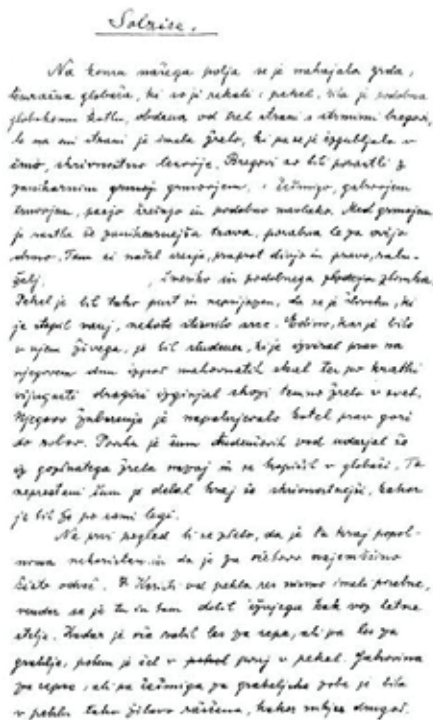 Solzice.
Na koncu našega polja se je nahajala grda,
temačna globača, ki so ji rekali: pekel. Bila je podobna
globokemu kotlu, obdana od treh strani s strmimi bregovi,
le na eni strani je imela žrelo, ki pa se je izgubljalo v
temò, skrivnostno lesovje. Bregovi so bili porastli z
zanikarnim grmovjem, s češmigo, gabrovjem
trnovjem, in podobno navlako. Med grmovjem
je rastla še zanikarnejša trava, porabna le za ovčjo
drno. Tam si našel praprot divjo in pravo,
in podobnega
Pekel je bil tako pust in neprijazen, da se je človeku, ki
je stopil vanj, nehote stisnilo srce. Edino, kar je bilo
v njem živega, je bil studenec, ki je izviral prav na
njegovem dnu izpod mahovnatih skal ter po kratki
vijugasti izginjal skozi temno žrelo v svet.
Njegovo žuborenje je napolnjevalo kotel prav gori
do robov. Povrhu je šum studenčevih vod udarjal še
iz goltnatega žrela nazaj in se kopičil v globači. Ta
neprestani šum je delal kraj še skrivnostnejši, kakor
je bil že po sami legi.
Na prvi pogled bi se zdelo, da je ta kraj popol-
noma nekoristen in da je za očetovo najemščino
čisto odveč. Koristi od pekla res nismo imeli posebne,
vendar se je tu in tam dobil iz njega kak voz letne
stelje. Kadar je oče rabil les za cepe, ali pa les za
grablje, potem je šel v pekel. Gabrovina
za cepce, ali pa češmiga za grabeljske zobe je bila
v peklu tako žilavo raščena, kakor nikjer drugod.